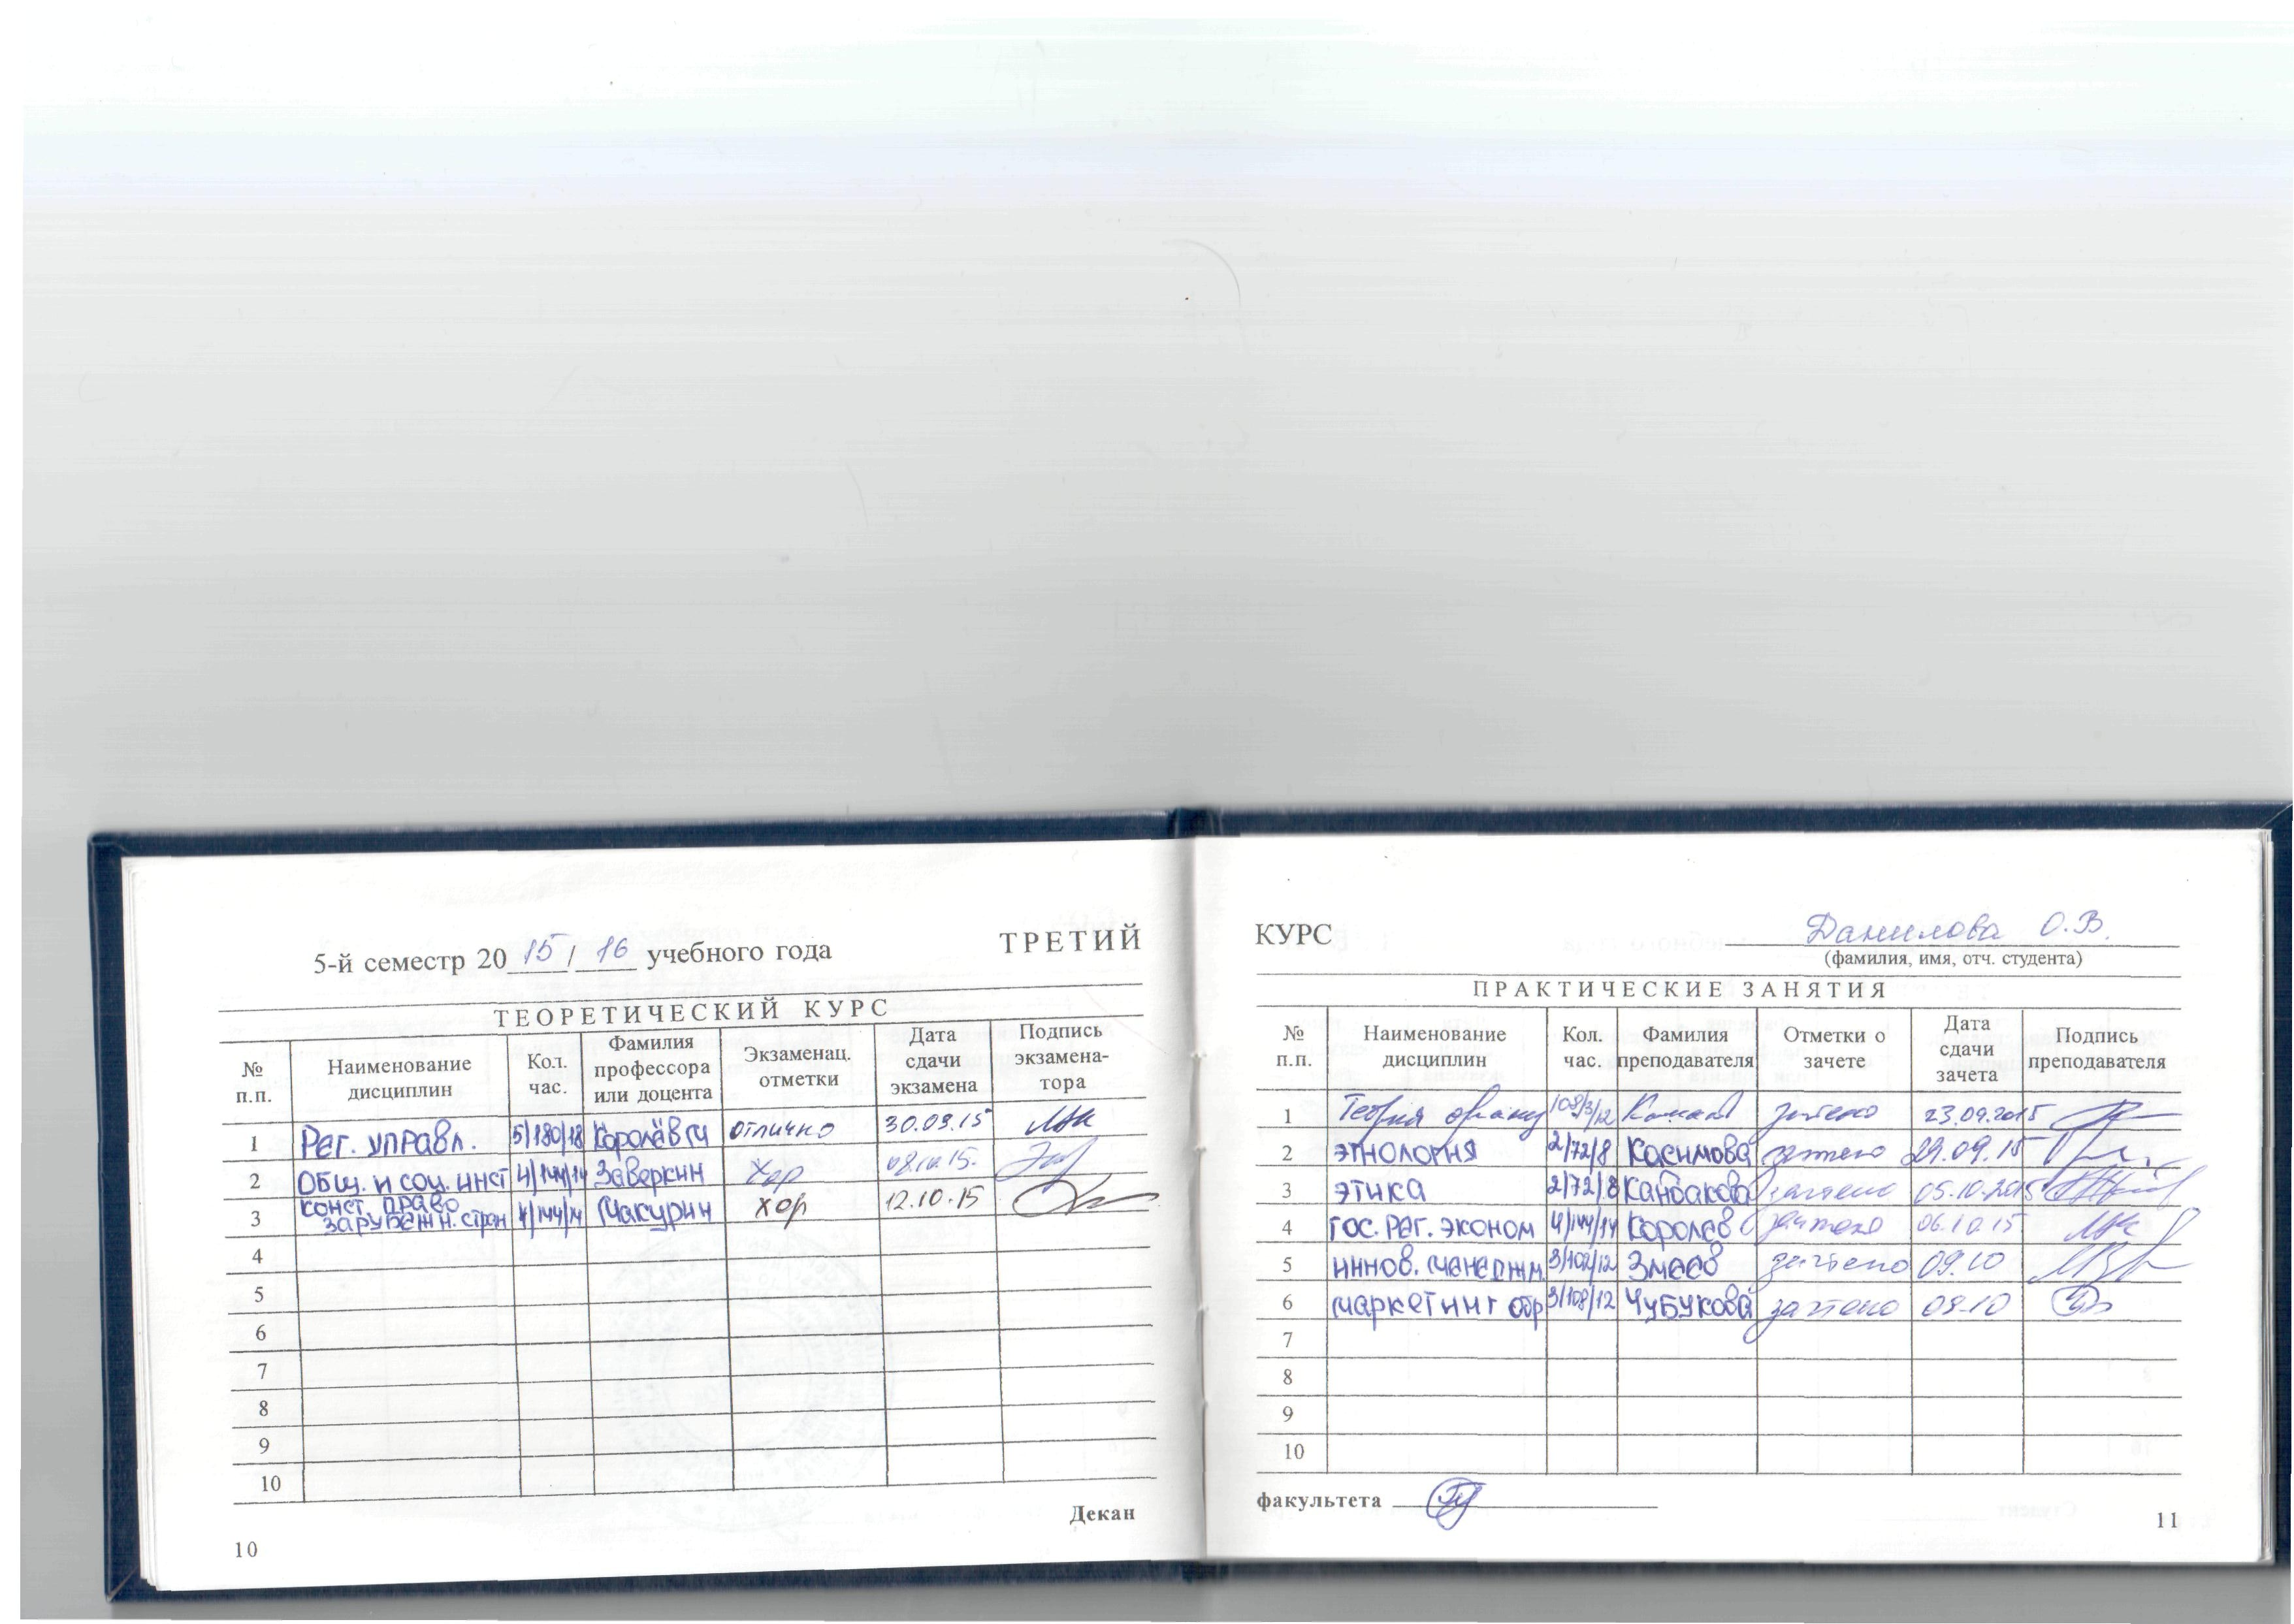 5-й семестр 20 15 / 16 учебного года ТРЕТИЙ
ТЕОРЕТИЧЕСКИЙ КУРС
№ п.п. Наименование дисциплин Кол. час. Фамилия профессора или доцента Экзаменац. отметки Дата сдачи экзамена Подпись экзамена-тора
1 Рег. управл. 5/180/18 Королёв отлично 30.09.15
2 Общ. и соц. инст 4/144/14 Заверкин хор 08.10.15.
3 конст. право зарубежн. стран 4/144/14 Макурин хор 12.10.15
4
5
6
7
8
9
10
Декан
10
КУРС Данилова О.В.
(фамилия, имя, отч. студента)
ПРАКТИЧЕСКИЕ ЗАНЯТИЯ
№ п.п. Наименование дисциплин Кол. час. Фамилия преподавателя Отметки о зачете Дата сдачи зачета Подпись преподавателя
1 Теория 108/3/12 зачтено 23.09.2015
2 этнология 2/72/8 Касимова зачтено 29.09.15
3 этика 2/72/8 Кандакова зачтено 05.10.2015
4 гос. рег. эконом 4/144/14 Королев зачтено 06.10.15
5 иннов. менеджм. 3/102/12 Змеев зачтено 09.10
6 маркетинг обр 3/108/12 Чубукова зачтено 09.10
7
8
9
10
факультета
11